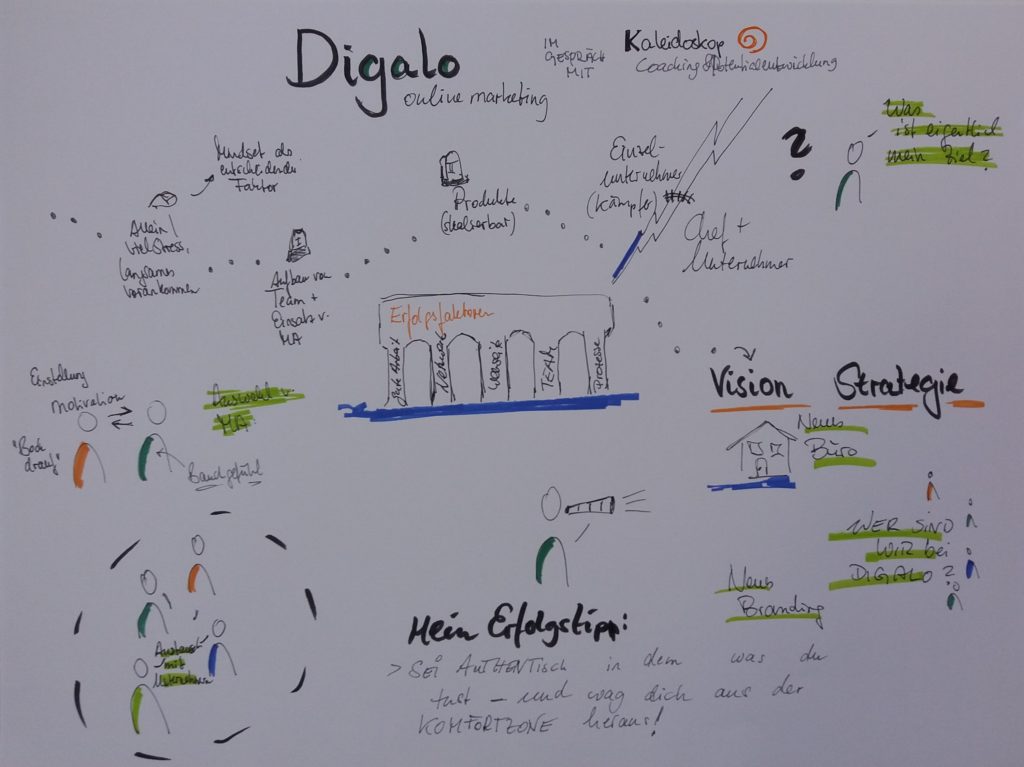 Digalo
online marketing
IM
GESPRÄCH
MIT
Kaleidoskop
Coaching & Potentialentwicklung
Was
ist eigentlich
mein Ziel?
?
Mindset als
entscheidender
Faktor
Allein /
viel Stress,
langsames
vorankommen
Aufbau von
Team +
Einsatz v.
MA
Produkte
(skalierbar)
Einzel-
unternehmer
(Kämpfer)
Chef +
Unternehmer
Erfolgsfaktoren
gute Arbeit
Netzwerk
TEAM
Prozesse
Einstellung
Motivation
"Bock
drauf"
Auswahl v.
MA
Bauchgefühl
Vision
Strategie
Neues
Büro
WER SIND
WIR bei
DIGALO?
Neues
Branding
Austausch
mit
Unternehmern
Mein Erfolgstipp:
> SEI AUTHENTISCH in dem was du
tust – und wag dich aus der
KOMFORTZONE heraus!